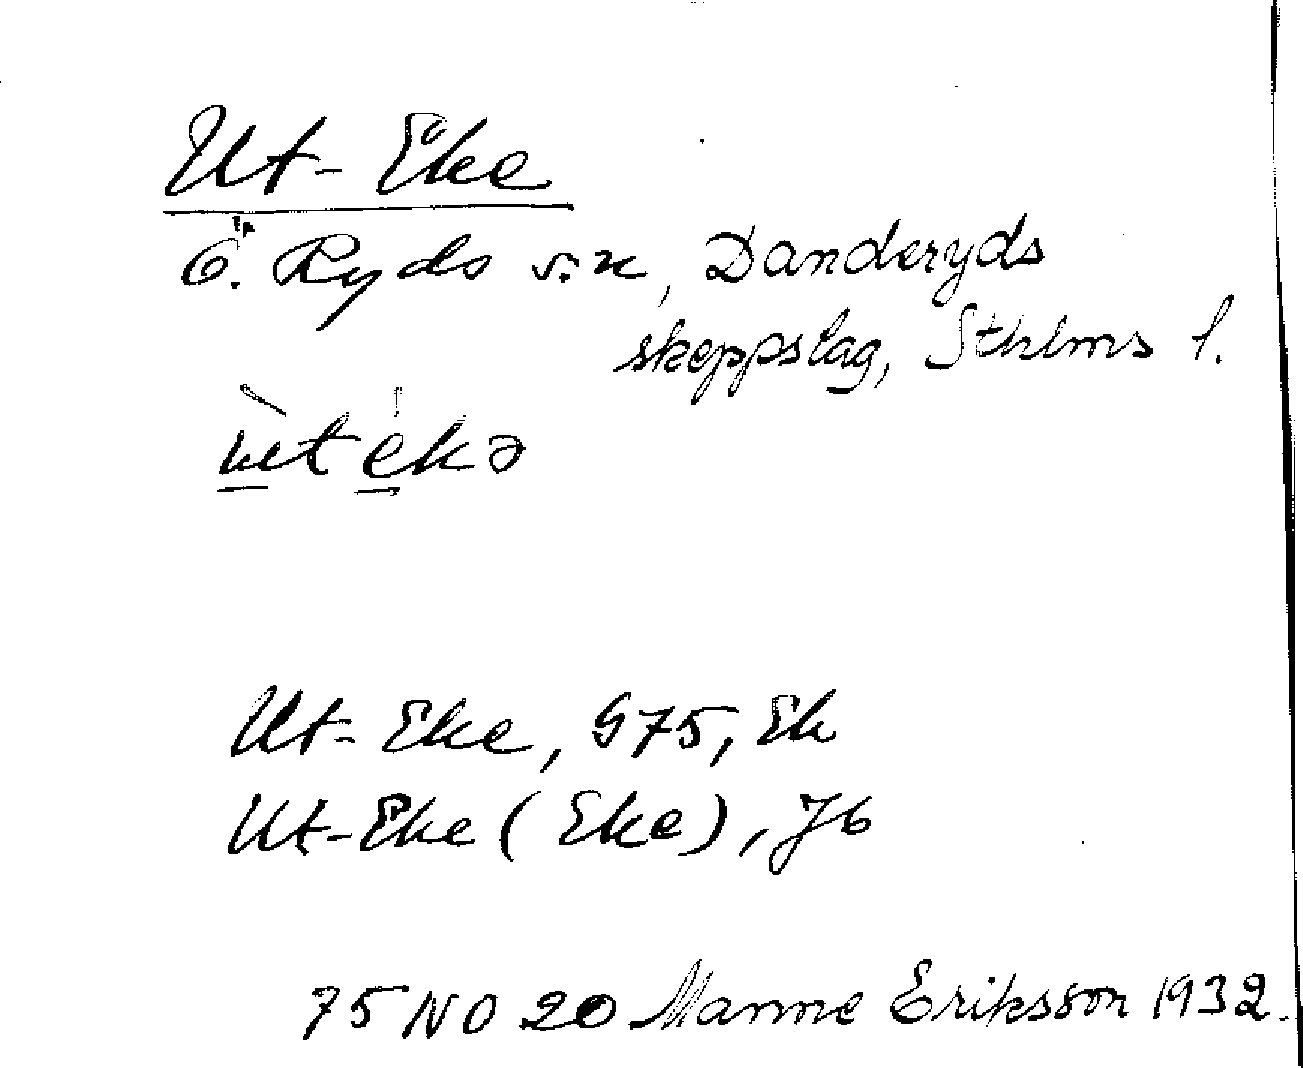 Ut-Eke
Ö. Ryds sn, Danderyds
skeppslag, Sthlms l.
ùt ékə
Ut-Eke, G75, Ek
Ut-Eke (Eke), Jb
75 NO 20 Manne Eriksson 1932.